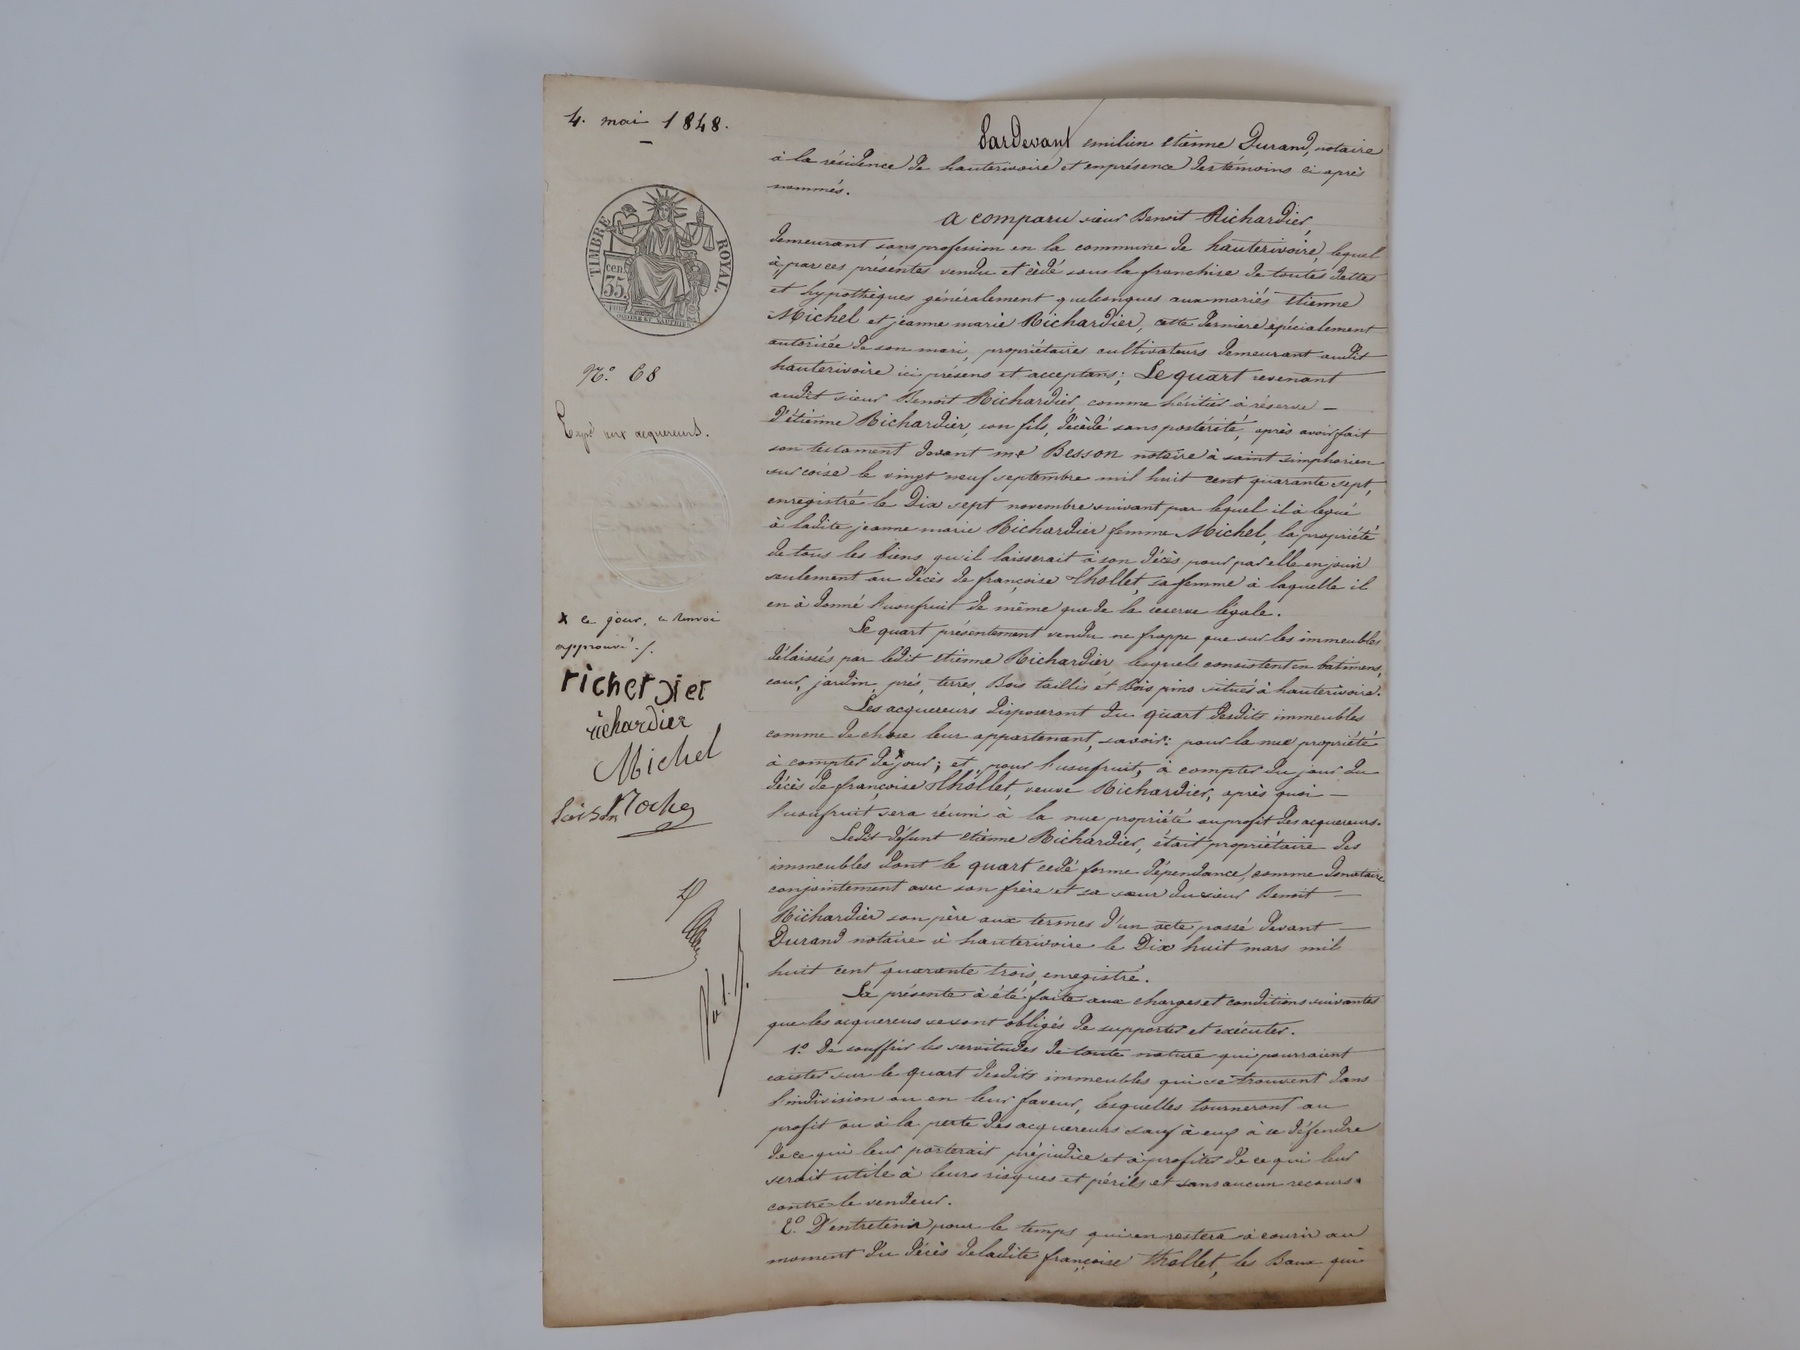 4. mai 1848.
TIMBRE ROYAL.
cen.
35.
N.º 68
Expé aux acquereurs.
x ce jour, ce renvoi
approuvé ./.
richerdier
richardier
Michel
Roche
Pardevant emilien etienne Durand, notaire
à la résidence de hauterivoire et enprésence des témoins ci après
nommés.
a comparu sieur Benoit Richardier,
demeurant sans profession en la commune de hauterivoire, lequel
à par ces présentes vendu et cèdé sous la franchise de toutes dettes
et hypothèques généralement quelconques aux mariés etienne
Michel et jeanne marie Richardier, cette derniere spécialement
autorisée de son mari, propriétaires cultivateurs demeurant audit
hauterivoire ici présens et acceptans; Le quart revenant
audit sieur Benoit Richardier comme héritier à réserve –
d'étienne Richardier, son fils, décèdé sans postérité, après avoir fait
son testament devant me Besson notaire à saint simphorien
sur coise le vingt neuf septembre mil huit cent quarante sept,
enregistré le Dix sept novembre suivant par lequel il à légué
à ladite jeanne marie Richardier femme Michel, la propriété
de tous les biens qu'il laisserait à son décès pour par elle en jouir
seulement au décès de françoise thollet, sa femme à laquelle il
en à donné l'usufruit de même que de le reserve légale.
Le quart présentement vendu ne frappe que sur les immeubles
délaissés par ledit etienne Richardier lesquels consistent en batimens,
cour, jardin, prés, terres, Bois taillis et Bois pins situés à hauterivoire.
Les acquereurs disposeront du quart desdits immeubles
comme de chose leur appartenant, savoir: pour la nue propriété
à compter de x jour; et, pour l'usufruit, à compter du jour du
décès de françoise thollet, veuve Richardier, après quoi –
l'usufruit sera réuni à la nue propriété au profit des acquereurs.
Ledit défunt etienne Richardier, était propriétaire des
immeubles dont le quart cedé forme dépendance, comme donataire
conjointement avec son frère et sa sœur du sieur Benoit –
Richardier son père aux termes d'un acte passé devant –
Durand notaire à hauterivoire le Dix huit mars mil
huit cent quarante trois, enregistré.
La présente à été faite aux charges et conditions suivantes
que les acquereurs se sont obligés de supporter et exécuter.
1.º De souffrir les servitudes de toute nature qui pourraient
exister sur le quart desdits immeubles qui se trouvent dans
l'indivision ou en leur faveur, lesquelles tourneront au
profit ou à la perte des acquereurs sauf à eux à se défendre
de ce qui leur porterait préjudice et à profiter de ce qui leur
serait utile à leurs risques et périls et sans aucun recours
contre le vendeur.
2.º D'entretenir pour le temps qui en restera à courir au
moment du décès de ladite françoise thollet, les Baux qui